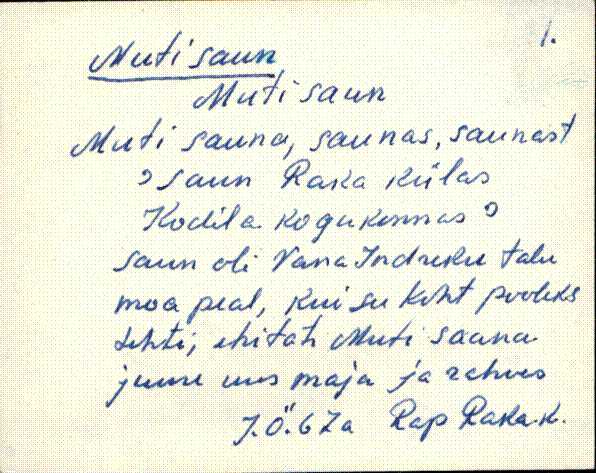 1.
Muti saun
Muti saun
Muti sauna, saunas, saunast
saun Raka külas
Kodila kogukonnas
saun oli Vana Indreku talu
moa peal, kui su koht pooleks
tehti, ehitati Muti saana
juure uus maja ja rahvas
J.Ö. 67a Rap Raka k.